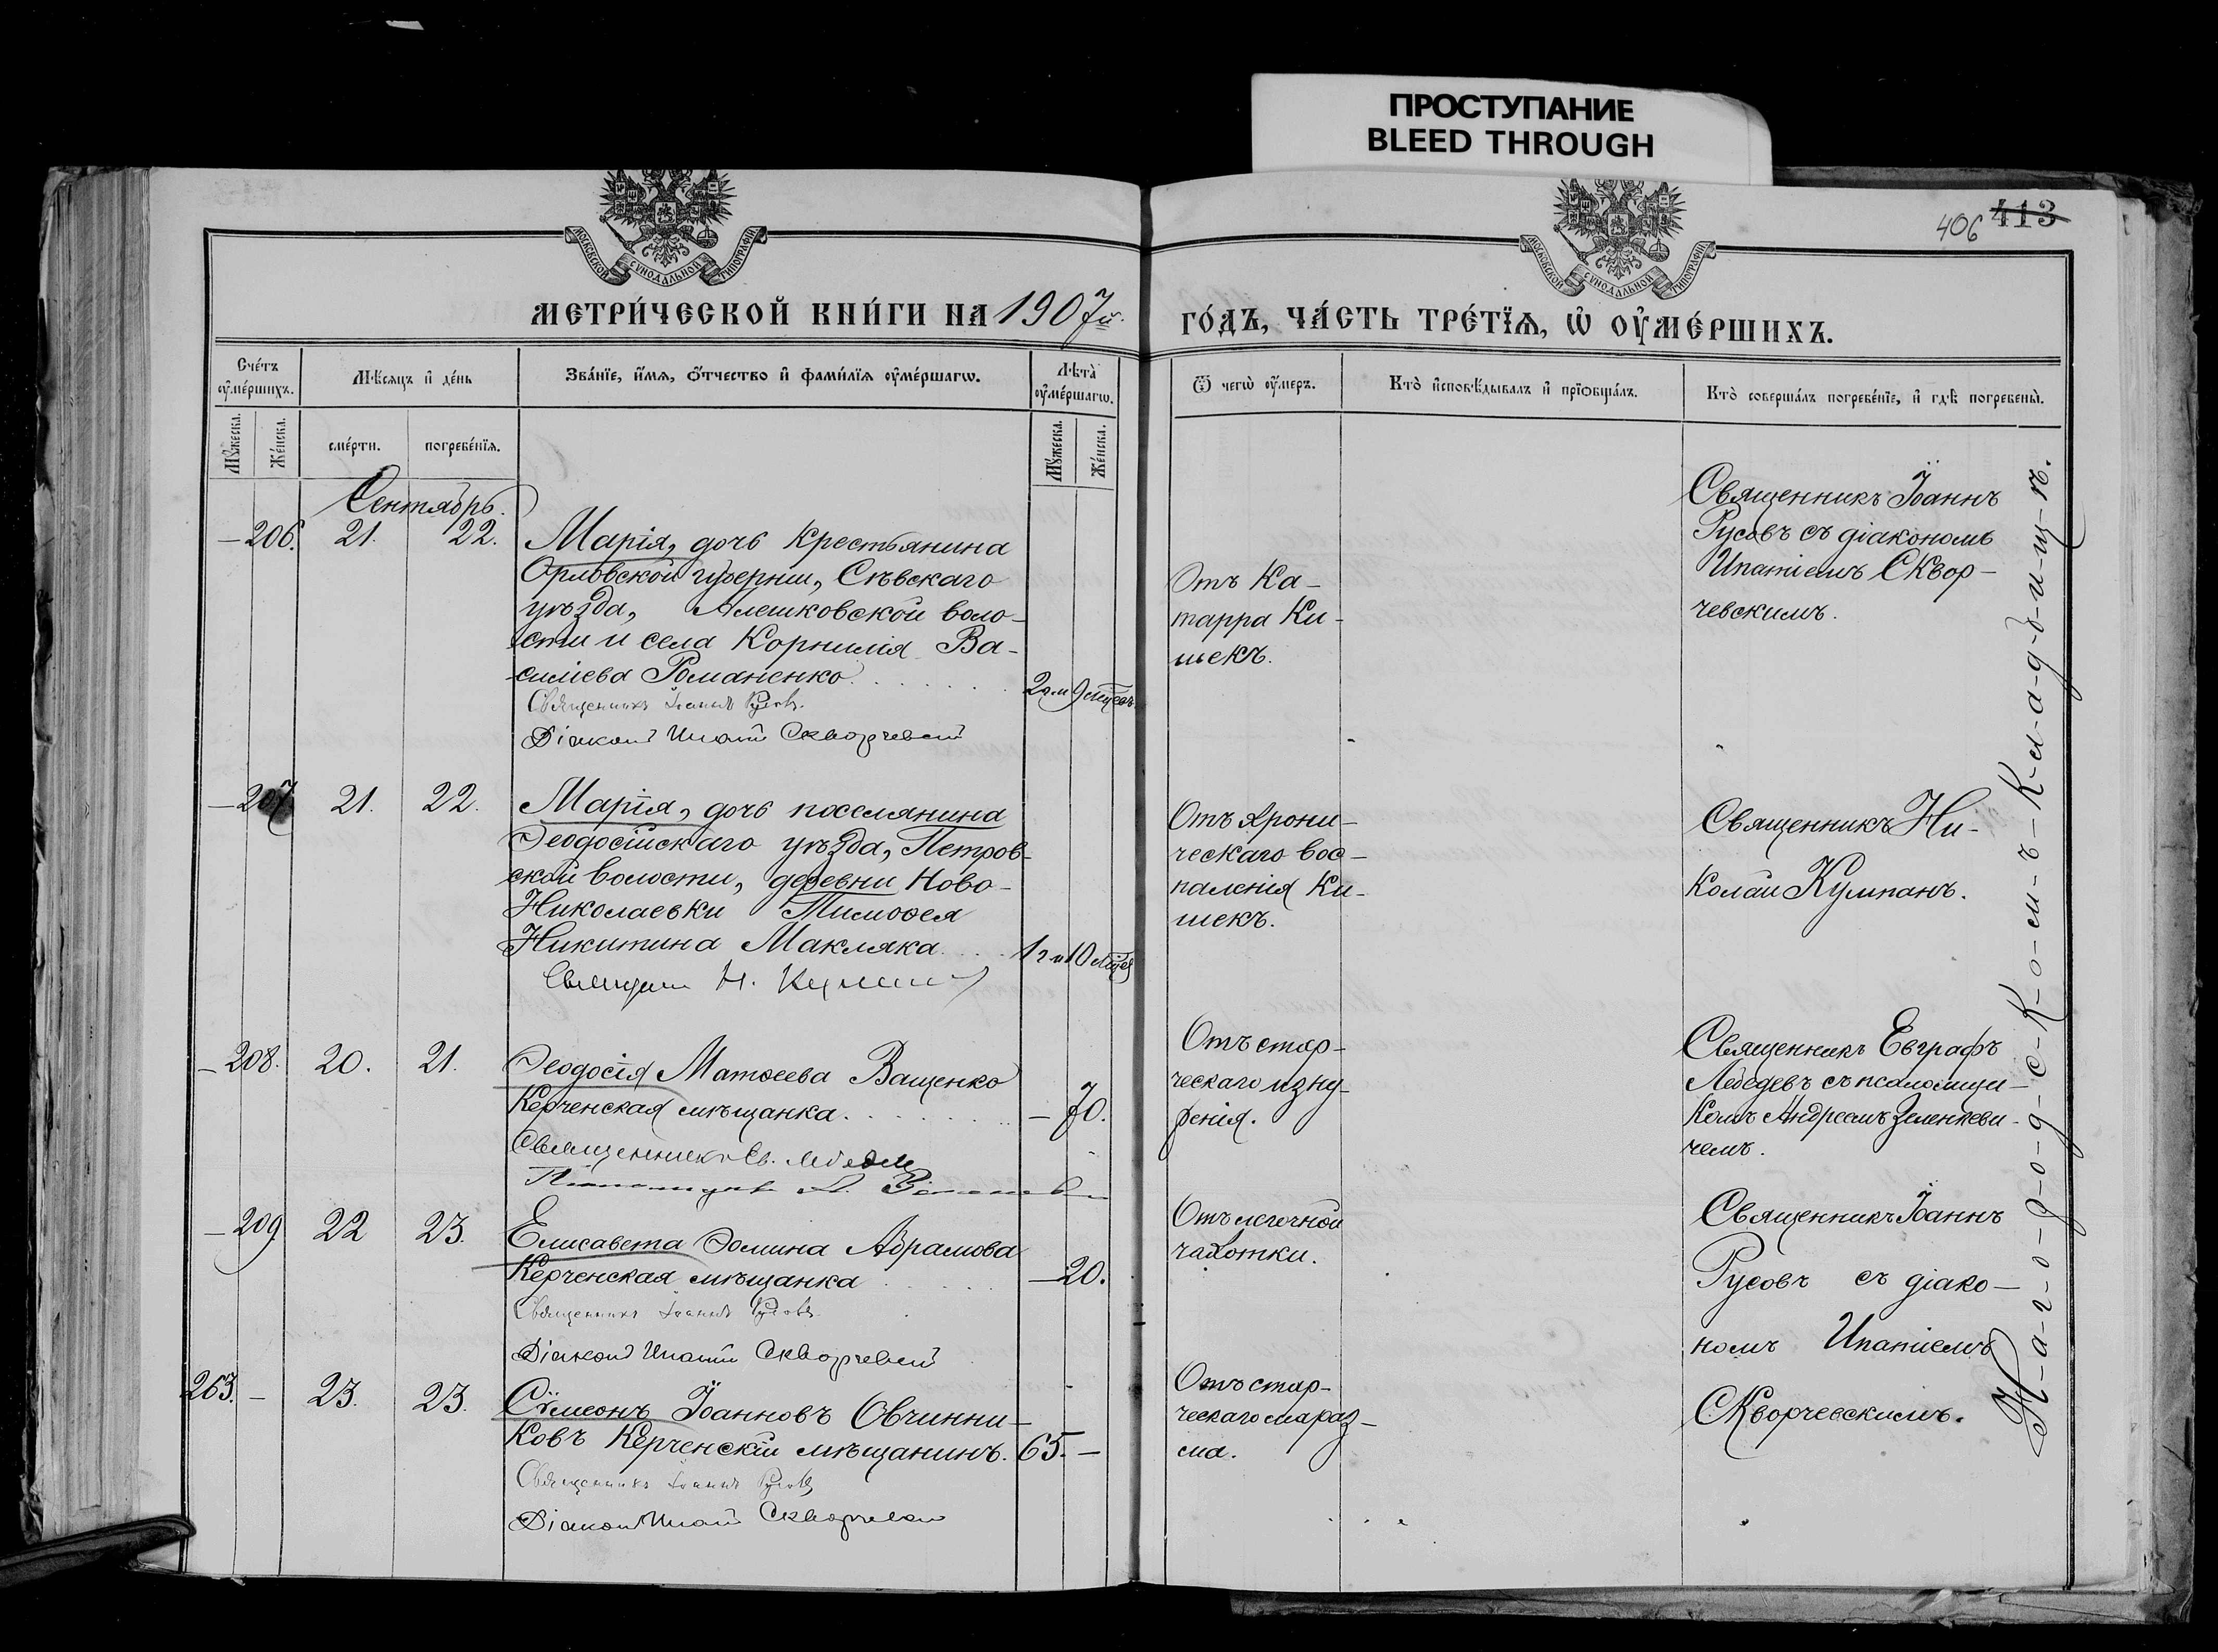 ПРОСТУПАНИЕ
BLEED THROUGH
406 413
МОСКОВСКОЙ СУНОДАЛЬНОЙ ТИПОГРАФІИ
МОСКОВСКОЙ СУНОДАЛЬНОЙ ТИПОГРАФІИ
МЕТРИ́ЧЕСКОЙ КНИ́ГИ НА 1907й.
ГО́ДЪ, ЧА́СТЬ ТРЕ́ТЇѦ, Ѡ҆ ОУ҆МЕ́РШИХЪ.
Сче́тъ оу҆ме́ршихъ.
Мꙋ́жеска.
Же́нска.
Мѣ́сяцъ и҆ де́нь
сме́рти.
погребе́нїѧ.
Зва́нїе, и҆́мѧ, ѻ҆́тчество и҆ фами́лїѧ оу҆ме́ршагѡ.
Лѣ̀та оу҆ме́ршагѡ.
Мꙋ́жеска.
Же́нска.
Ѿ чегѡ̀ оу҆́меръ.
Кто̀ и҆сповѣ́дывалъ и҆ прїѡбща́лъ.
Кто̀ соверша́лъ погребе́нїе, и҆ гдѣ̀ погребены̀.
Сентябрь.
— 206. 21. 22.
Марія, дочь крестьянина
Орловской губерніи, Сѣвскаго
уѣзда, Алешковской воло-
сти и села Корнилія Ва-
силіева Романенко.
2г. и 9 мѣсяч.
Священникъ Іоаннъ Русовъ.
Діаконъ Ипатій Скворчевскій
Отъ Ка-
тарра Ки-
шекъ.
Священникъ Іоаннъ
Русовъ съ діакономъ
Ипатіемъ Сквор-
чевскимъ.
— 207 21. 22.
Марія, дочь поселянина
Ѳеодосійскаго уѣзда, Петров-
ской волости, деревни Ново-
Николаевки Тимоѳея
Никитина Макляка.
1г. и 10 мѣся
Священ Н. Кумпан
Отъ хрони-
ческаго вос-
паленія Ки-
шекъ.
Священникъ Ни-
колай Кумпанъ.
— 208. 20. 21.
Ѳеодосія Матѳеева Ващенко
Керченская мѣщанка.
— 70.
Священникъ Ев. Лебедев
Псаломщик А. Зеленкеви
Отъ стар-
ческаго изну-
ренія.
Священникъ Евграфъ
Лебедевъ съ псаломщи-
комъ Андреемъ Зеленкеви-
чемъ.
— 209 22 23.
Елисавета Ѳомина Абрамова
Керченская мѣщанка
— 20.
Священникъ Іоаннъ Русовъ.
Діаконъ Ипатій Скворчевскій
Отъ легочной
чахотки.
Священникъ Іоаннъ
Русовъ съ діако-
номъ Ипатіемъ
Скворчевскимъ.
263. — 23. 23.
Сѵмеонъ Іоанновъ Овчинни-
ковъ Керченскій мѣщанинъ.
65. —
Священникъ Іоаннъ Русовъ
Діаконъ Ипатій Скворчевскій
Отъ стар-
ческаго мараз-
ма.
Н-а-г-о-р-о-д-с-к-о-м-ъ-к-л-а-д-б-и-щ-ѣ.